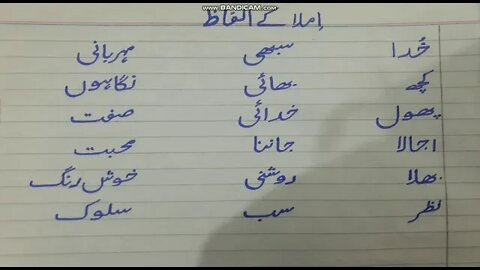 WWW.BANDICAM.COM
اِملا کے الفاظ
خُدا سبھی مہربانی
کچھ بھائی نگاہوں
پھول خدائی صفت
اجالا جاننا محبت
بھلا روشنی خوش رنگ
نظر سب سلوک